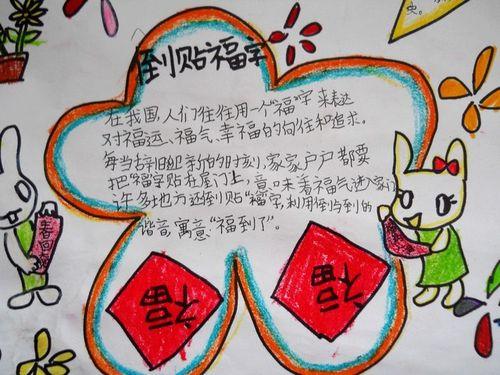 史。
倒贴福字
在我国,人们往往用一个“福”字来表达
对福运、福气、幸福的向往和追求。
每当辞旧迎新的时刻,家家户户都要
把“福”字贴在屋门上,意味着福气进家门
许多地方还倒贴“福”字,利用倒与到的
谐音,寓意“福到了”。
春回
福
福